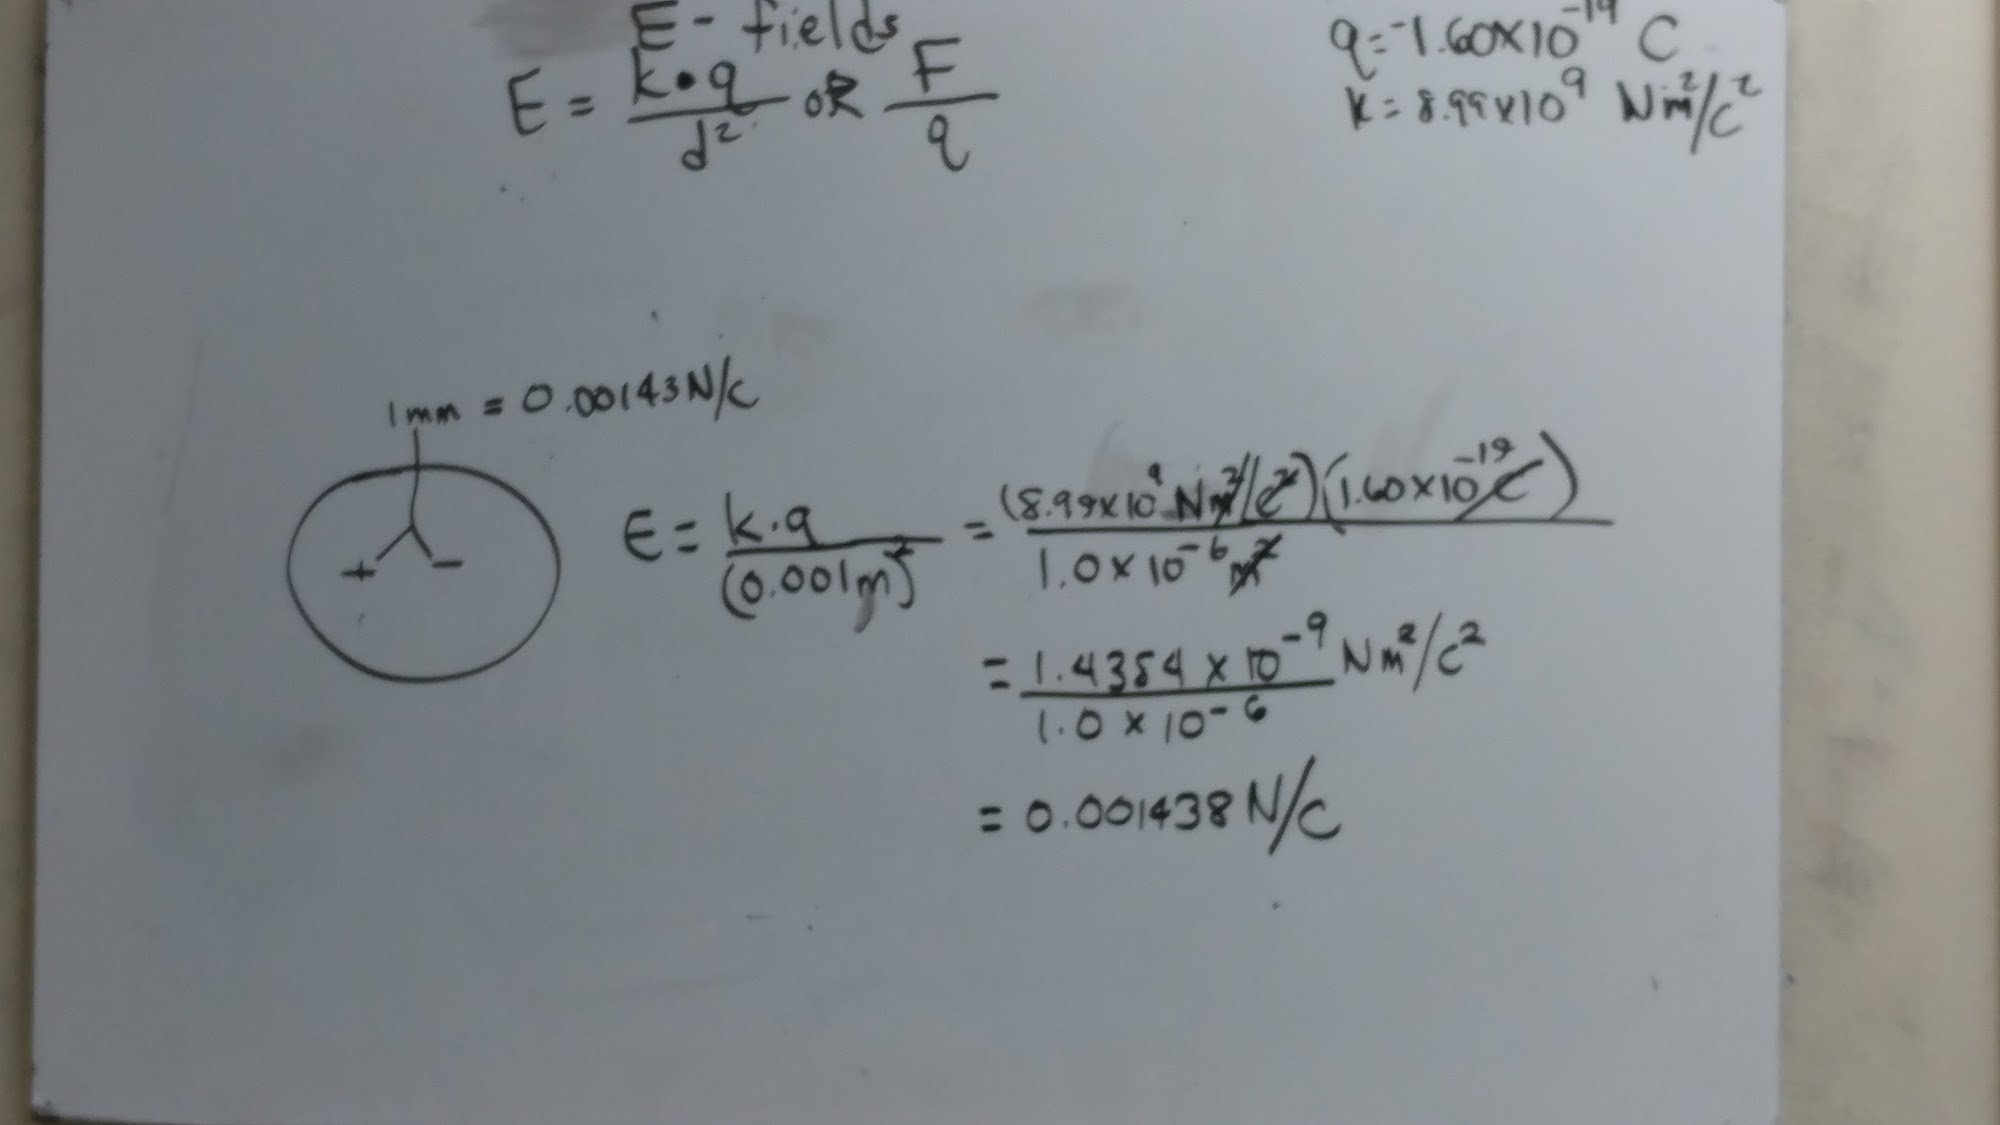 E- fields
E = k•q/d² OR F/q
q=-1.60x10⁻¹⁹ C
k=8.99x10⁹ Nm²/C²
1mm = 0.00143N/C
+ -
E = k.q/(0.001m)² = (8.99x10⁹ Nm²/C²)(1.60x10⁻¹⁹C)/1.0x10⁻⁶m²
= 1.4384 x 10⁻⁹ Nm²/C²/1.0 x 10⁻⁶
= 0.001438N/C